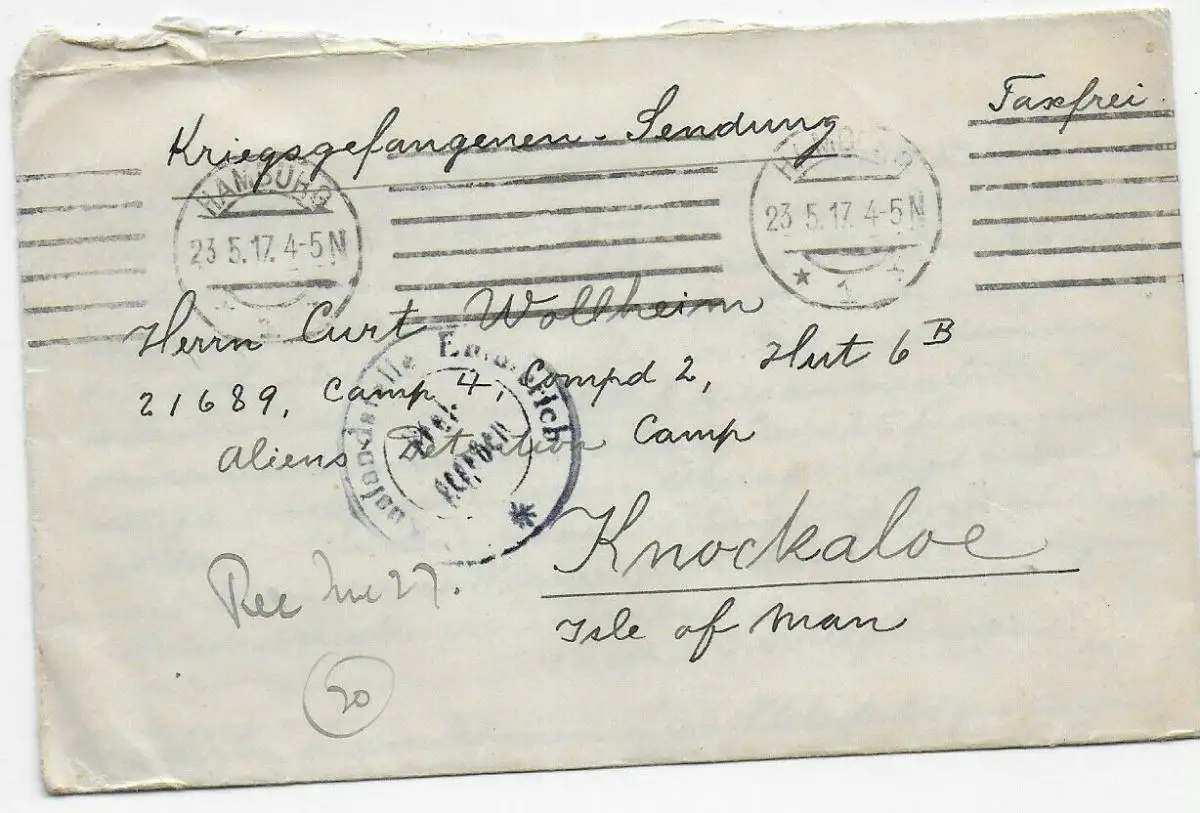 Kriegsgefangenen-Sendung
Taxfrei.
HAMBURG
23.5.17. 4-5 N
HAMBURG
23.5.17. 4-5 N
1
Herrn Curt Wollheim
21689, Camp 4, Compd 2, Hut 6 B
Aliens Detention Camp
Knockaloe
Isle of Man
Auslandstelle Emmerich
Freigegeben
Rec June 27.
20